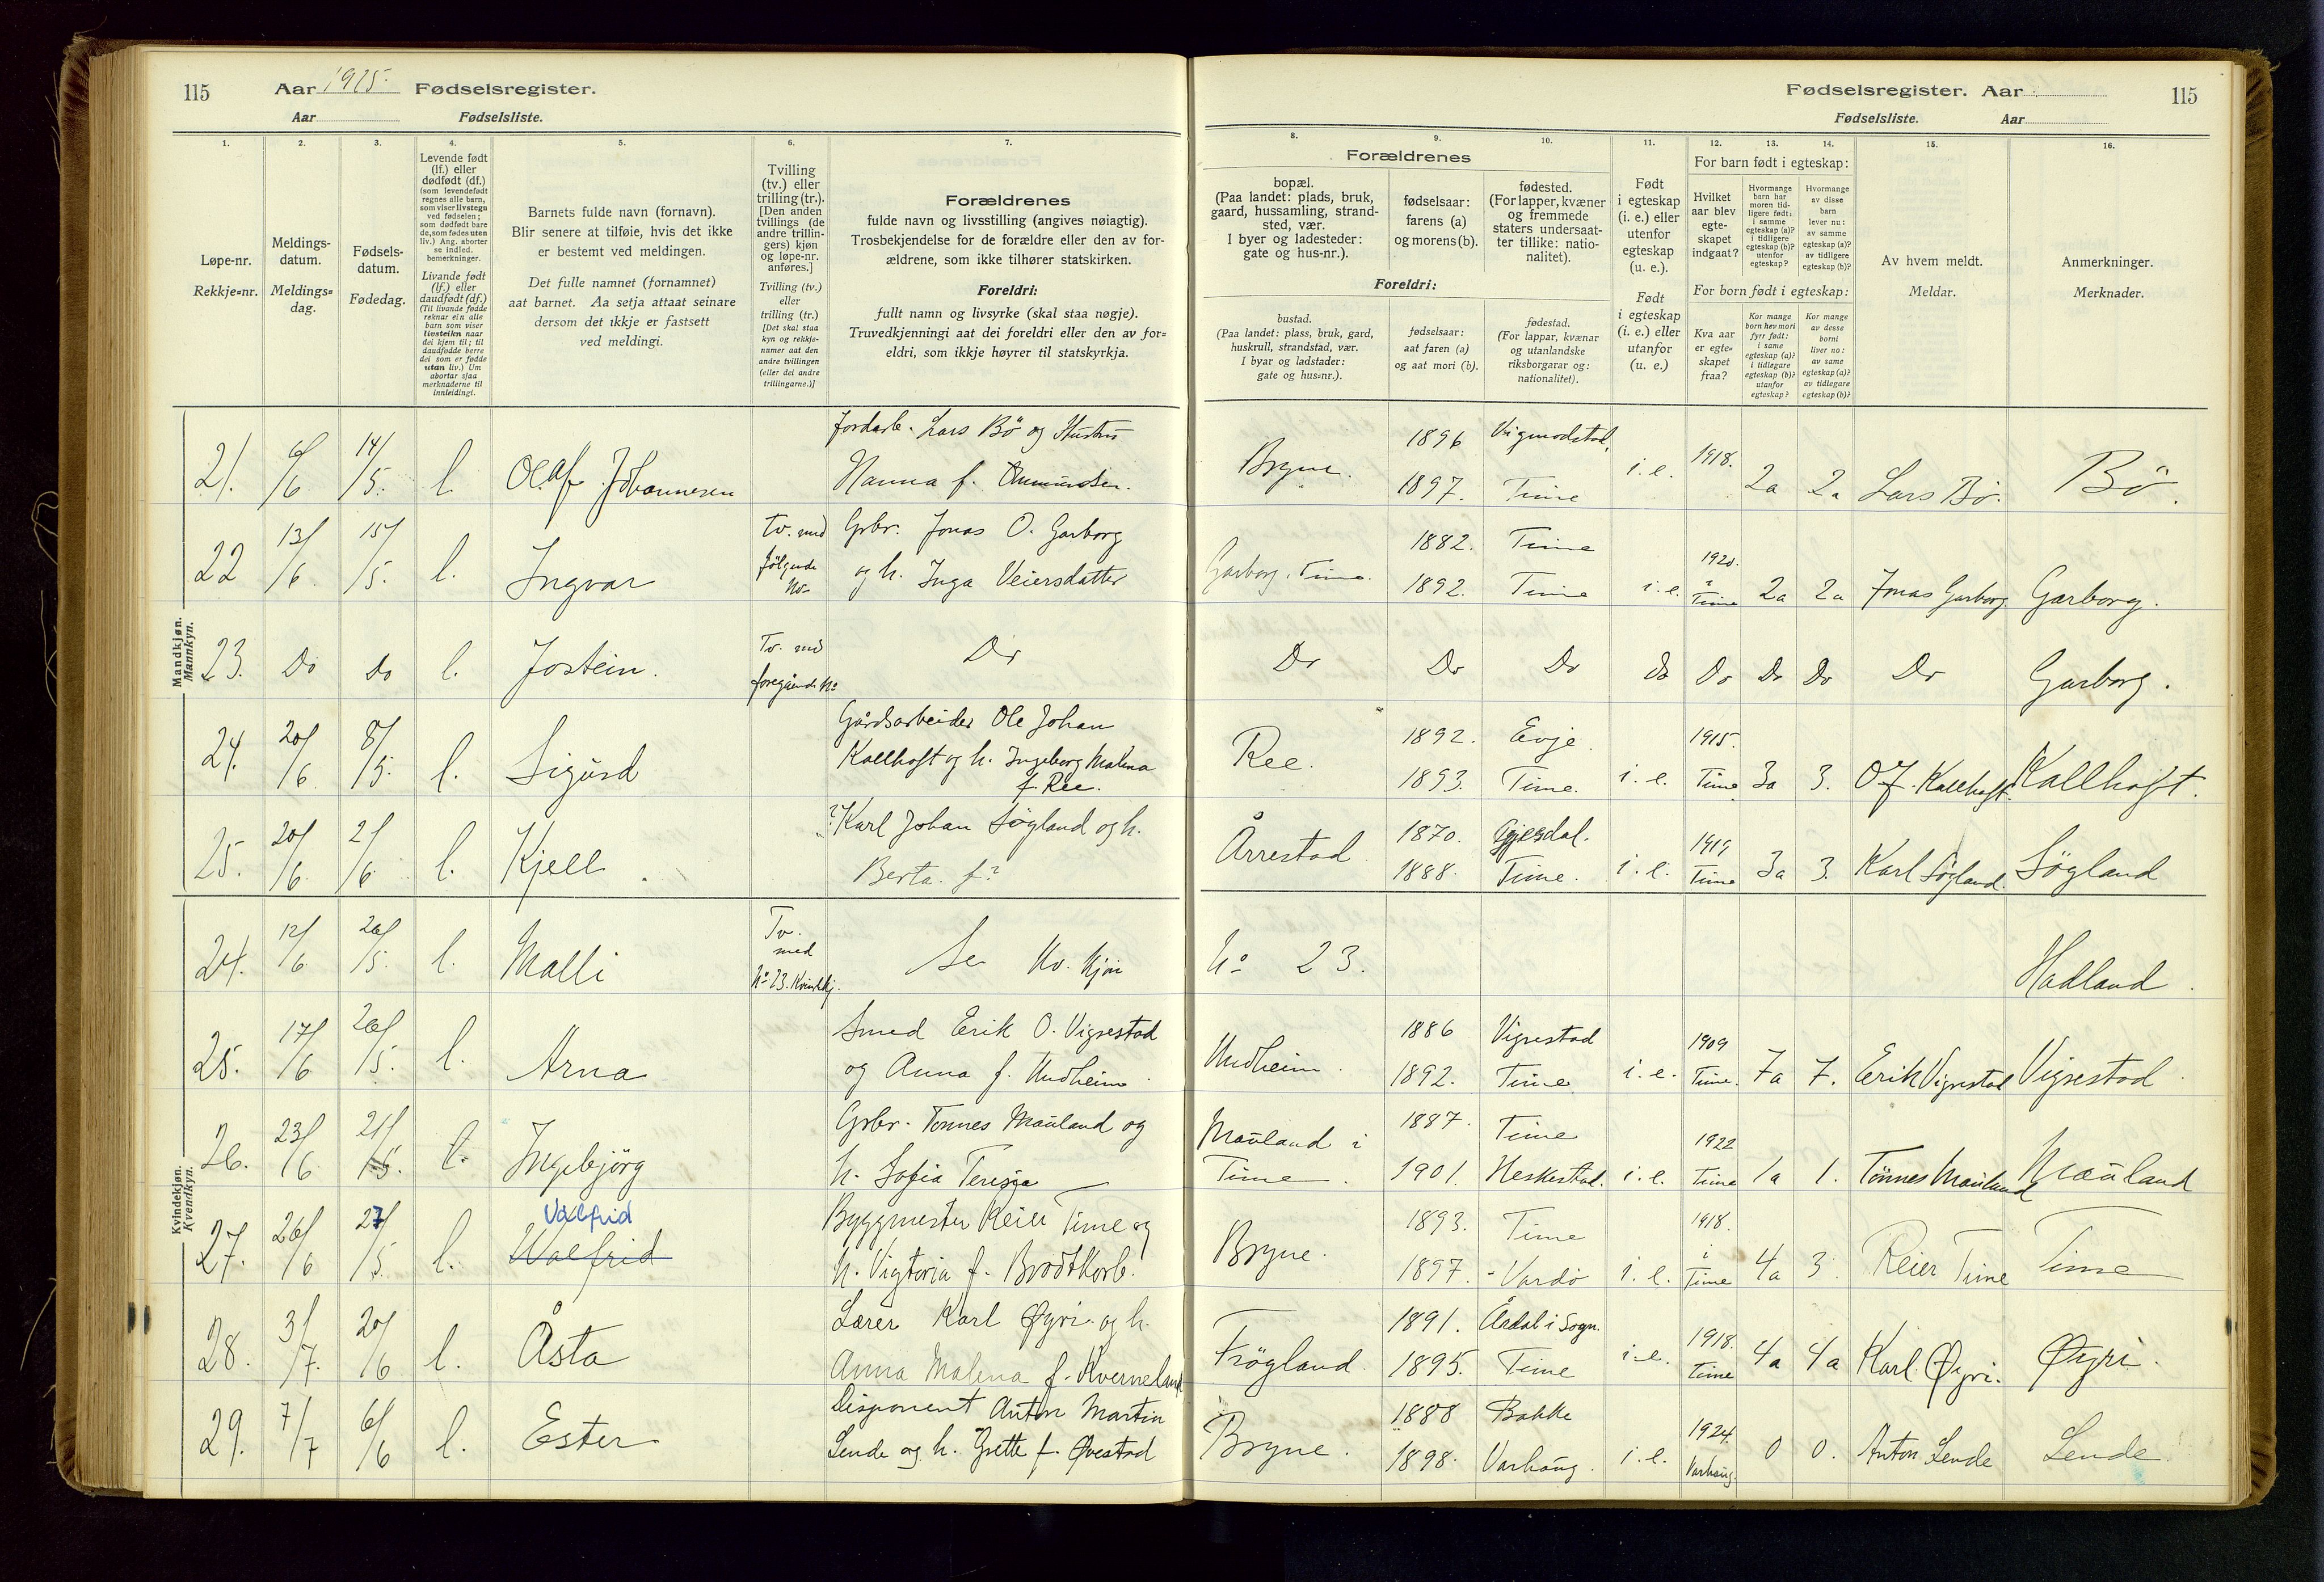 115 Aar 1925. Fødselsregister.
Aar Fødselsliste.
Fødselsregister. Aar 115
Fødselsliste. Aar
1. 2. 3. 4. 5. 6. 7.
Løpe-nr.
Rekkje=nr.
Meldings-
datum.
Meldings=
dag.
Fødsels-
datum.
Fødedag.
Levende født
(lf.) eller
dødfødt (df.)
(som levendefødt
regnes alle barn,
som viser livstegn
ved fødselen;
som dødfødt bare
de, som fødes uten
liv.) Ang. aborter
se indled.
bemerkninger.
Livande født
(lf.) eller
daudfødt (df.)
(Til livande fødde
reknar ein alle
barn som viser
livsteikn naar
dei kjem til; til
daudfødde berre
dei som er fødde
utan liv.) Um
abortar sjaa
merknaderne til
innleidingi.
Barnets fulde navn (fornavn).
Blir senere at tilføie, hvis det ikke
er bestemt ved meldingen.
Det fulle namnet (fornamnet)
aat barnet. Aa setja attaat seinare
dersom det ikkje er fastsett
ved meldingi.
Tvilling
(tv.) eller
trilling (tr.).
[Den anden
tvillings (de
andre trillin-
gers) kjøn
og løpe-nr.
anføres.]
Tvilling (tv.)
eller
trilling (tr.)
[Det skal staa
kyn og rekkje-
numer aat den
andre tvillingen
(eller dei andre
trillingarne.)]
Forældrenes
fulde navn og livsstilling (angives nøiagtig).
Trosbekjendelse for de forældre eller den av for-
ældrene, som ikke tilhører statskirken.
Foreldri:
fullt namn og livsyrke (skal staa nøgje).
Truvedkjenningi aat dei foreldri eller den av for=
eldri, som ikkje høyrer til statskyrkja.
8. 9. 10. 11. 12. 13. 14. 15. 16.
Forældrenes
bopæl.
(Paa landet: plads, bruk,
gaard, hussamling, strand-
sted, vær.
I byer og ladesteder:
gate og hus-nr.).
fødselsaar:
farens (a)
og morens (b).
fødested.
(For lapper, kvæner
og fremmede
staters undersaat-
ter tillike: natio-
nalitet).
Foreldri:
bustad.
(Paa landet: plass, bruk, gard,
huskrull, strandstad, vær.
I byar og ladstader:
gate og hus=nr.).
fødselsaar:
aat faren (a)
og aat mori (b).
fødestad.
(For lappar, kvænar
og utanlandske
riksborgarar og:
nationalitet).
Født
i egteskap
(i. e.) eller
utenfor
egteskap
(u. e.).
Født
i egteskap
(i. e.) eller
utanfor
(u. e.)
For barn født i egteskap:
Hvilket
aar blev
egte-
skapet
indgaat?
Hvormange
barn har
moren tid-
ligere født:
i samme
egteskap (a)?
i tidligere
egteskap (b)?
utenfor
egteskap?
Hvormange
av disse
barn
lever nu:
av samme
egteskap (a)?
av tidligere
egteskap (b)?
For born født i egteskap:
Kva aar
er egte=
skapet
fraa?
Kor mange
born hev mori
fyrr født:
i same
egteskap (a)?
i tidlegare
egteskap (b)?
utanfor
egteskap?
Kor mange
av desse
borni
liver no:
av same
egteskap (a)?
av tidlegare
egteskap (b)?
Av hvem meldt.
Meldar.
Anmerkninger.
Merknader.
Mandkjøn.
Mannkyn.
21. 6/6 14/5. l. Olaf Johannesen Jordarb. Lars Bö og Hustru
Hanna f. Aanundsen. Bryne. 1896 Vigmodstad.
1897. Time i. e. 1918. 2a 2a Lars Bö. Bö.
22 13/6. 15/5. l. Ingvar Tv. med
følgende
No Grbr. Jonas O. Garborg
og h. Inga Veiersdatter Garborg, Time. 1882. Time
1892. Time i. e. 1920.
i
Time 2a 2a Jonas Garborg Garborg.
23. Do Do l. Jostein. Tv. med
foregående No Do Do Do Do Do Do Do Do Do Garborg.
24. 20/6. 8/5. l. Sigurd Gårdsarbeider Ole Johan
Kallhoft og h. Ingeborg Malena
f. Ree. Ree. 1892. Evje.
1893. Time. i. e. 1915.
Time 3a 3. O J. Kallhoft. Kallhoft.
25. 20/6 2/6 l. Kjell. ? Karl Johan Søgland og h.
Berta f? Årrestad 1870. Gjesdal.
1888. Time. i. e. 1919
Time 3a 3. Karl Søgland. Søgland
Kvindekjøn.
Kvendkyn.
24. 12/6 26/5. l. Malli Tv.
med
No 23. Kvindekj. Se Kv. Kjøn No 23. Hadland.
25. 17/6 26/5. l. Arna Smed Erik O. Vigrestad
og Anna f. Undheim. Undheim. 1886 Vigrestad
1892. Time i. e. 1909
Time. 7a 7. Erik Vigrestad Vigrestad
26. 23/6 21/5. l. Ingebjörg Grbr. Tønnes Mauland og
h. Sofia Teresia Mauland i
Time. 1887. Time
1901. Heskestad. i. e. 1922
Time 1a 1. Tønnes Mauland Mauland
27. 26/6 27/5 l. Valfrid
Walfrid Byggmester Reier Time og
h. Vigtoria f. Brodtkorb. Bryne. 1893. Time
1897. - Vardö i. e. 1918.
i
Time 4a 3. Reier Time Time
28. 3/7. 20/6 l. Åsta Lærer Karl Øyri og h.
Anna Malena f. Kverneland Frøgland. 1891. Årdal i Sogn.
1895. Time i. e. 1918.
Time 4a 4a Karl Øyri. Øyri.
29. 7/7 6/6 l. Ester Disponent Anton Martin
Lende og h. Grette f. Øvestad Bryne. 1888 Bakke
1898. Varhaug. i. e. 1924.
Varhaug. 0 0. Anton Lende Lende